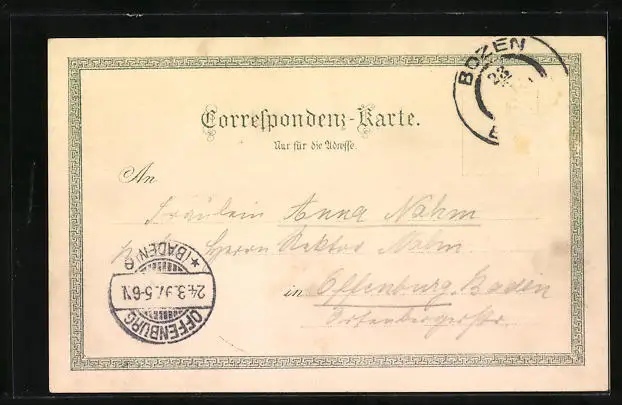 BOZEN
23
Correspondenz-Karte.
Nur für die Adresse.
An
Fräulein Anna Nahm
Herrn Rektor Nahm
in Offenburg, Baden
Ortenbergerstr.
OFFENBURG
24.3.97.5-6N.
* (BADEN)